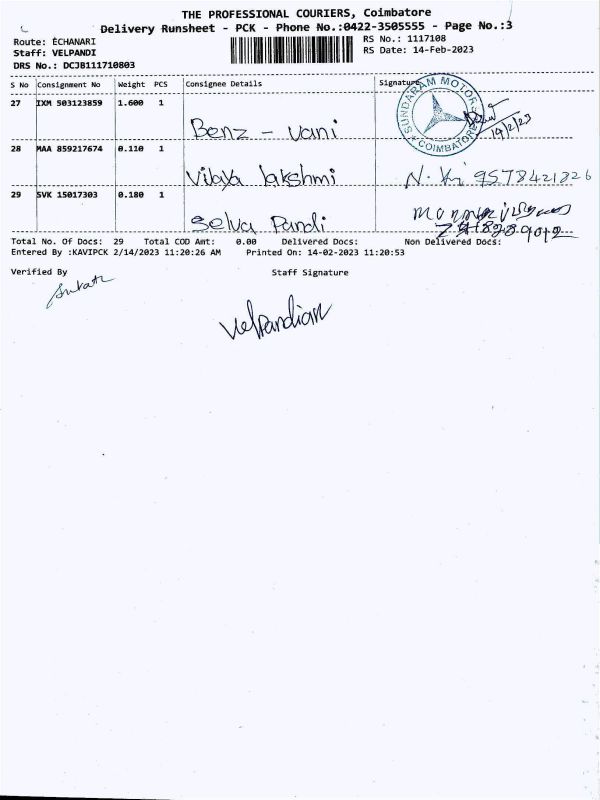 THE PROFESSIONAL COURIERS, Coimbatore
Delivery Runsheet - PCK - Phone No.:0422-3505555 - Page No.:3
Route: ECHANARI
RS No.: 1117108
Staff: VELPANDI
RS Date: 14-Feb-2023
DRS No.: DCJB111710803
S No Consignment No Weight PCS Consignee Details Signature
27 IXM 503123859 1.600 1 Benz - Vani
SUNDARAM MOTORS
COIMBATORE
14/2/23
28 MAA 859217674 0.110 1 Vijaya lakshmi 9578421826
29 SVK 15017303 0.180 1 Selva Pandi
Total No. Of Docs: 29 Total COD Amt: 0.00 Delivered Docs: Non Delivered Docs:
Entered By :KAVIPCK 2/14/2023 11:20:26 AM Printed On: 14-02-2023 11:20:53
Verified By Staff Signature
Velpandian